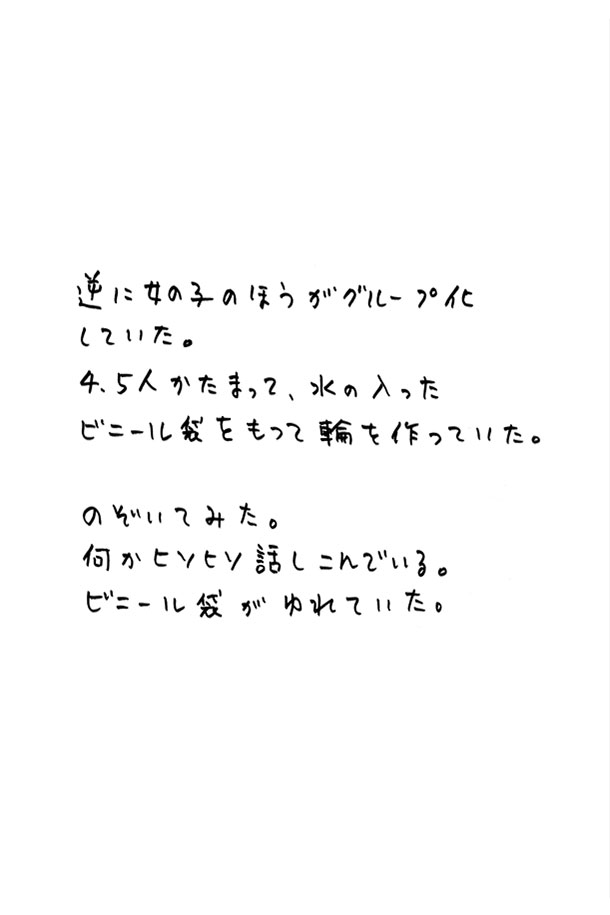 逆に女の子のほうがグループ化
していた。
4、5人かたまって、水の入った
ビニール袋をもって輪を作っていた。
のぞいてみた。
何かヒソヒソ話しこんでいる。
ビニール袋がゆれていた。